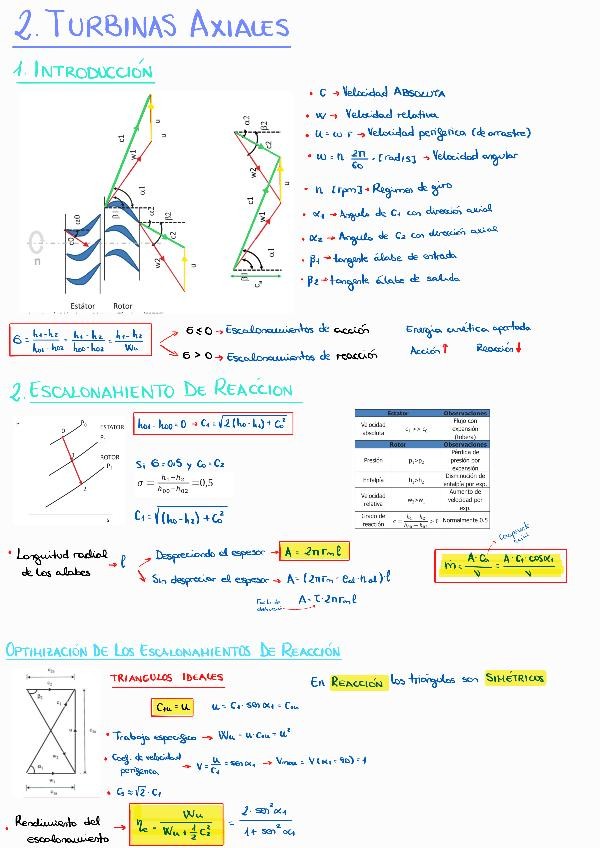 2. TURBINAS AXIALES
1. INTRODUCCIÓN
• C → Velocidad ABSOLUTA
• W → Velocidad relativa
• U = ω r → Velocidad periferica (de arrastre)
• ω = n 2π/60 · [rad/s] → Velocidad angular
n [rpm] → Regimen de giro
• α1 → Angulo de C1 con dirección axial
• α2 → Angulo de C2 con dirección axial
• β1 → tangente álabe de entrada
• β2 → tangente álabe de salida
c1
w1
u
α1
β1
α2
β2
c2
w2
α0
n
Estátor Rotor
σ = h1-h2/h01-h02 = h1-h2/h00-h02 = h1-h2/Wu
σ ≤ 0 → Escalonamientos de acción
σ > 0 → Escalonamientos de reacción
Energía cinética aportada
Acción ↑ Reacción ↓
2. ESCALONAMIENTO DE REACCION
0 P0 ESTATOR
1 P1
ROTOR
2
s
h01 - h00 = 0 → C1 = √2(h0-h1) + C0²
Si σ = 0,5 y C0 = C2
σ = h1 - h2/h00 - h02 = 0,5
C1 = √(h0-h2) + C0²
Estator Observaciones
Velocidad absoluta c1 >> c0 Flujo con expansión (tobera)
Rotor Observaciones
Presión p1>p2 Pérdida de presión por expansión
Entalpía h1>h2 Disminución de entalpía por exp.
Velocidad relativa w2>w1 Aumento de velocidad por exp.
Grado de reacción Normalmente 0.5
• Longitud radial de los alabes → l
Despreciando el espesor → A = 2π rm l
Sin despreciar el espesor →
A = τ · 2π rm l
ṁ = A·Ca/v = A·C1·cosα1/v
OPTIMIZACIÓN DE LOS ESCALONAMIENTOS DE REACCIÓN
TRIANGULOS IDEALES
En REACCIÓN los triángulos son SIMÉTRICOS
C1u = u u = C1 · sen α1 = C1u
• Trabajo especifico → Wu = u · C1u = u²
• Coef. de velocidad periferica → V = u/C1 = sen α1 → Vmax = V(α1 = 90) = 1
• Rendimiento del escalonamiento → ηe = Wu/Wu + 1/2 C2² = 2 · sen² α1/1 + sen² α1